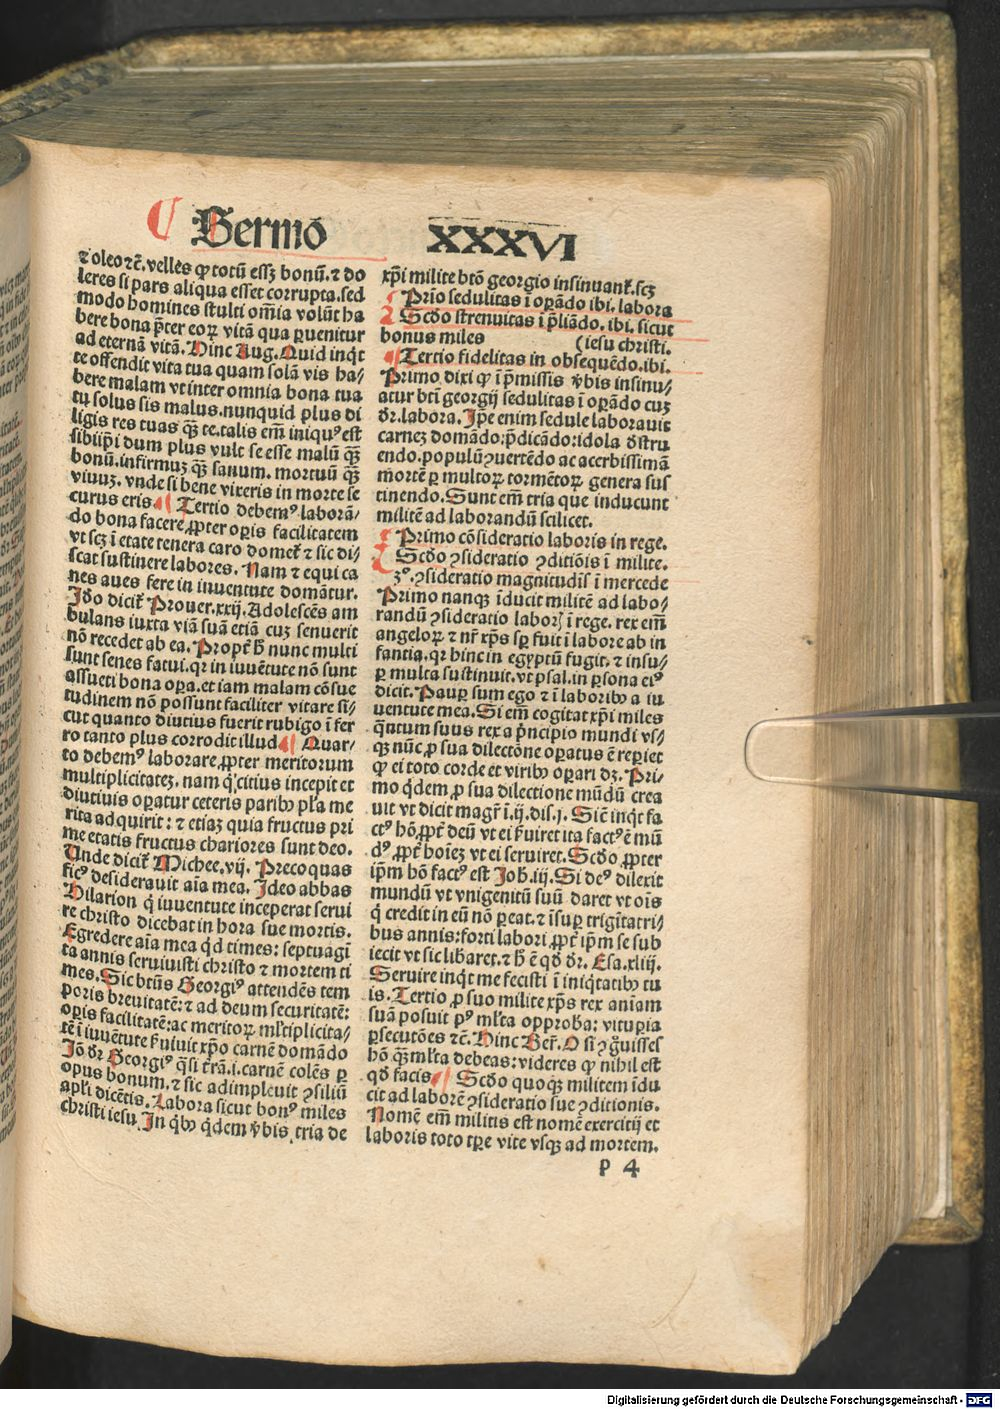 Sermo
XXXVI
⁊ oleo ⁊c̄. velles ꝙ totū essꝫ bonū. ⁊ do
leres si pars aliqua esset corrupta. sed
modo homines stulti om̄ia volūt ha
bere bona p̄ter eoꝝ vitā qua ꝑuenitur
ad eternā vitā. Hinc Aug. Quid inq̇t
te offendit vita tua quam solā vis ha/
bere malam vt inter omnia bona tua
tu solus sis malus. nunquid plus di
ligis res tuas q̄ꝫ te. talis em̄ iniquꝰ est
sibiip̄i dum plus vult se esse malū q̄ꝫ
bonū. infirmuꝫ q̄ꝫ sanum. mortuū q̄ꝫ
viuuꝫ. vnde si bene vixeris in morte se
curus eris. ¶ Tertio debemꝰ laborā/
do bona facere ꝓpter oꝑis facilitatem
vt scꝫ ī etate tenera caro domet̄ ⁊ sic di/
scat sustinere labores. Nam ⁊ equi ca
nes aues fere in iuuentute domātur.
Iḋo dicit̄ Prouer. xxij. Adolescēs am
bulans iuxta viā suā etiā cuꝫ senuerit
nō recedet ab ea. Propt̄ h̄ nunc multi
sunt senes fatui. qr in iuuētute nō sunt
assueti bona oꝑa. et iam malam cōsue
tudinem nō possunt faciliter vitare si/
cut quanto diutius fuerit rubigo ī fer
ro tanto plus corrodit illud ¶ Quar/
to debemꝰ laborare ꝓpter meritorum
multiplicitateꝫ. nam q̇ citius incepit et
diutiuis oꝑatur ceteris paribꝰ pl̄a me
rita adquirit: ⁊ etiaꝫ quia fructus pri
me etatis fructus chariores sunt deo.
Unde dicit̄ Michee. vij. Precoquas
ficꝰ desiderauit aīa mea. Ideo abbas
Hilarion q̇ iuuentute inceperat serui
re christo dicebat in hora sue mortis.
Egredere aīa mea qd times: septuagī
ta annis seruiuisti christo ⁊ mortem ti
mes. Sic btūs Georgiꝰ attendēs tem
poris breuitatē: ⁊ ad deum securitatē:
oꝑis facilitatē: ac meritoꝝ ml̄tiplicita/
tē ī iuuētute s̄uiuit xp̄o carnē domādo
Iō dr̄ Georgiꝰ q̄si t̄rā .i. carnē colēs ꝑ
opus bonum. ⁊ sic adimpleuit ꝯsiliū
apl̄i dicētis. Labora sicut bonꝰ miles
christi iesu. In q̇bꝰ q̇dem v̄bis tria de
xp̄i milite btō georgio insinuant̄. scꝫ
Prio sedulitas ī oꝑādo ibi. labora
Scd̄o strenuitas ī p̄liādo. ibi. sicut
bonus miles (iesu christi.
¶ Tertio fidelitas in obsequēdo. ibi.
Primo dixi ꝙ ī p̄missis v̄bis insinu/
atur btī georgij sedulitas ī oꝑādo cuꝫ
dr̄. labora. Ip̄e enim sedule laborauit
carneꝫ domādo: p̄dicādo: idola d̄stru
endo. populū ꝯuertēdo ac acerbissimā
mortē ꝑ multoꝝ tormētoꝝ genera sus
tinendo. Sunt em̄ tria que inducunt
militē ad laborandū scilicet.
Primo cōsideratio laboris in rege.
Scd̄o ꝯsideratio ꝯditiōis ī milite.
3ꝰ. ꝯsideratio magnitudīs ī mercede
Primo nanqꝫ īducit militē ad labo/
randū ꝯsideratio laboꝝ ī rege. rex em̄
angeloꝝ ⁊ nr̄ xp̄s sꝑ fuit ī labore ab in
fantia. qr hinc in egyptū fugit. ⁊ insu/
ꝑ multa sustinuit. vt psal. in ꝑsona eiꝰ
dicit. Pauꝑ sum ego ⁊ ī laboribꝰ a iu
uentute mea. Si em̄ cogitat xp̄i miles
q̄ntum suus rex a p̄ncipio mundi vs/
qꝫ nūc ꝓ sua dilectōne oꝑatus ē reꝑiet
ꝙ ei toto corde et viribꝰ oꝑari dꝫ. Pri/
mo q̇dem ꝓ sua dilectione mūdū crea
uit vt dicit magr̄ ī. ij. dis. j. Sic̄ inq̇t fa
ctꝰ hō ꝓpt̄ deū vt ei s̄uiret ita factꝰ ē mū
dꝰ ꝓpt̄ hoīeꝫ vt ei seruiret. Scd̄o ꝓpter
ip̄m hō factꝰ est Joh. iij. Si deꝰ dilexit
mundū vt vnigenitū suū daret vt oīs
q̇ credit in eū nō ꝑeat. ⁊ īsuꝑ trigīta tri/
bus annis: forti labori ꝓpt̄ ip̄m se sub
iecit vt sic lib̄aret. ⁊ h̄ ē qd̄ dr̄. Esa. xliij.
Seruire inq̇t me fecisti ī iniq̇tatibꝰ tu
is. Tertio ꝓ suo milite xp̄s rex aniam
suā posuit pꝰ ml̄ta opprob̄a: vituꝑia
ꝑsecutōes ⁊c̄. Hinc Ber̄. O si ꝯg̃uisses
hō q̄ꝫ ml̄ta debeas: videres ꝙ nihil est
qd̄ facis ¶ Scd̄o quoqꝫ militem īdu
cit ad laborē ꝯsideratio sue ꝯditionis.
Nomē em̄ militis est nomē exercitij et
laboris toto tꝑe vite vsqꝫ ad mortem.
p 4
Digitalisierung gefördert durch die Deutsche Forschungsgemeinschaft - DFG